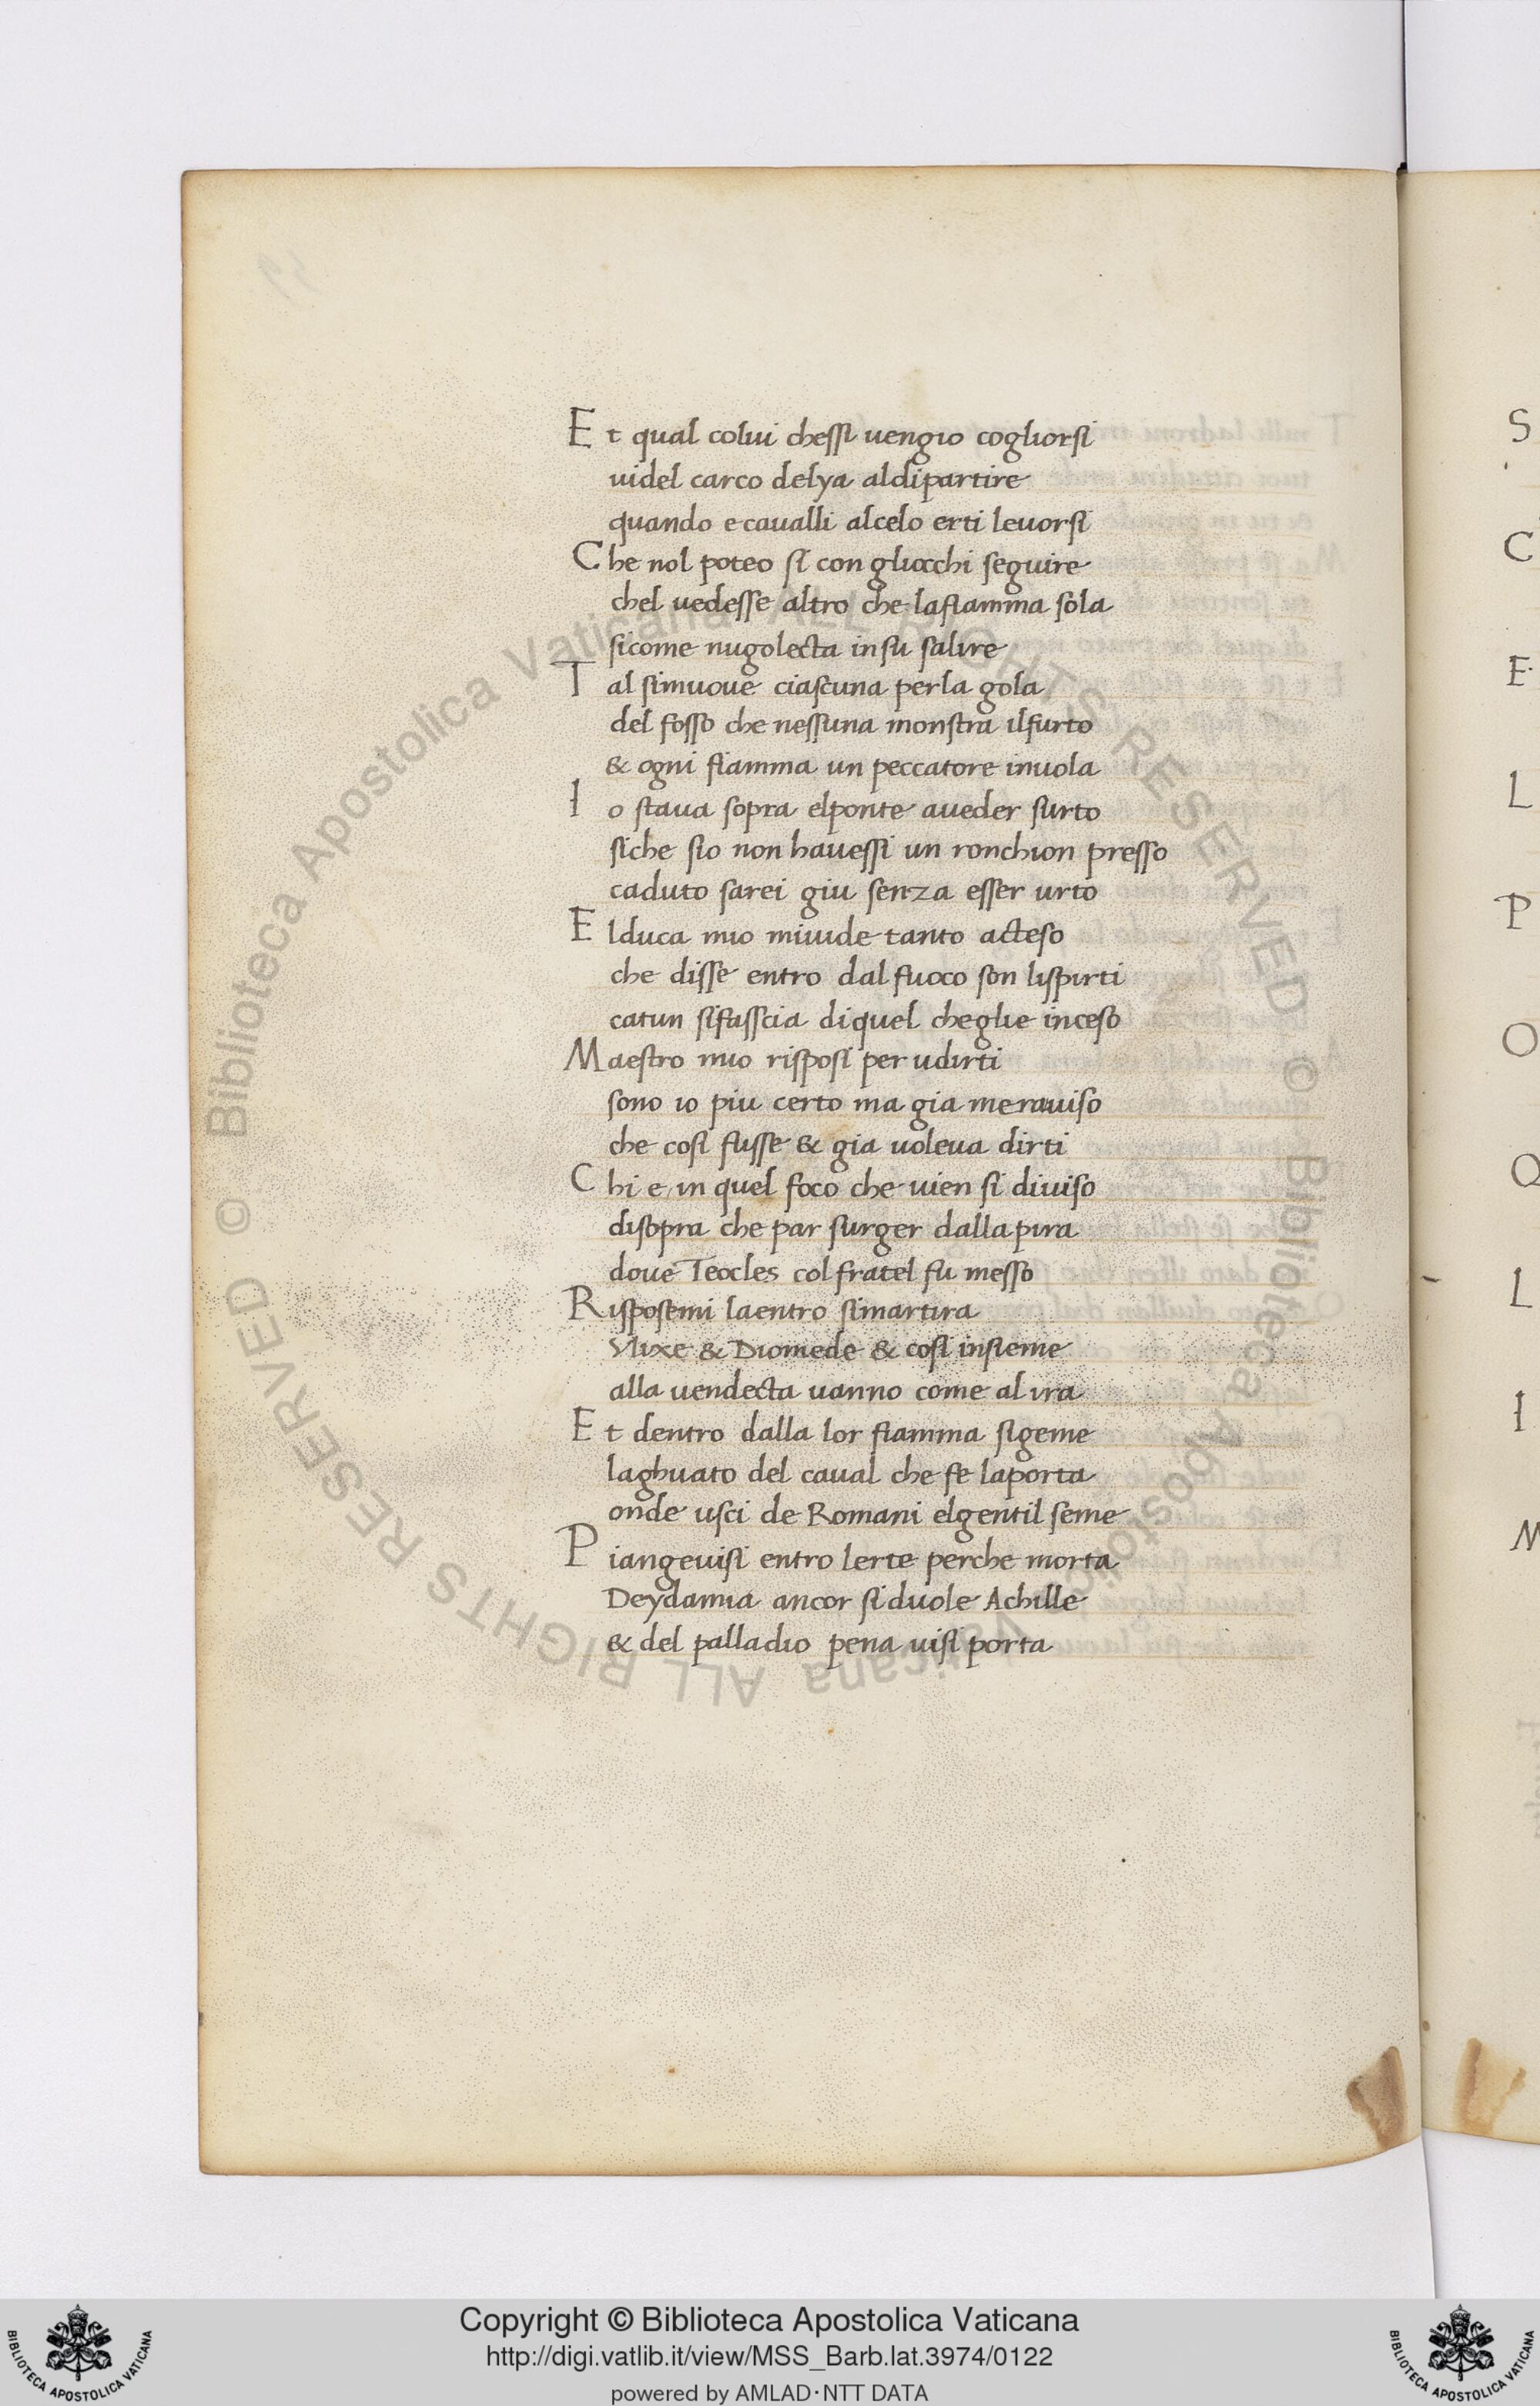 Et qual colui chessi vengio cogliorsi
videl carco delya aldipartire
quando e cavalli alcelo erti levorsi
Che nol poteo si con gliocchi seguire
chel vedesse altro che lafiamma sola
sicome nugolecta insu salire
Tal simuove ciascuna perla gola
del fosso che nessuna monstra ilfurto
& ogni fiamma un peccatore invola
Io stava sopra elponte aveder surto
siche sio non havessi un ronchion presso
caduto sarei giu senza esser urto
Elduca mio mivide tanto acteso
che disse entro dal fuoco son lispirti
catun sifasscia diquel cheglie inceso
Maestro mio risposi per udirti
sono io piu certo ma gia meraviso
che cosi fusse & gia voleva dirti
Chi e in quel foco che vien si diviso
disopra che par surger dallapira
dove Teocles col fratel fu messo
Risposemi laentro simartira
Vlixe & Diomede & cosi insieme
alla vendecta vanno come al ira
Et dentro dalla lor fiamma sigeme
laghuato del caval che fe laporta
onde usci de Romani elgentil seme
Piangevisi entro lerte perche morta
Deydamia ancor siduole Achille
& del palladio pena visi porta
S
C
E
L
P
O
Q
L
I
M
© Biblioteca Apostolica Vaticana ALL RIGHTS RESERVED © Biblioteca Apostolica Vaticana ALL RIGHTS RESERVED
BIBLIOTECA APOSTOLICA VATICANA
Copyright © Biblioteca Apostolica Vaticana
http://digi.vatlib.it/view/MSS_Barb.lat.3974/0122
powered by AMLAD·NTT DATA
BIBLIOTECA APOSTOLICA VATICANA